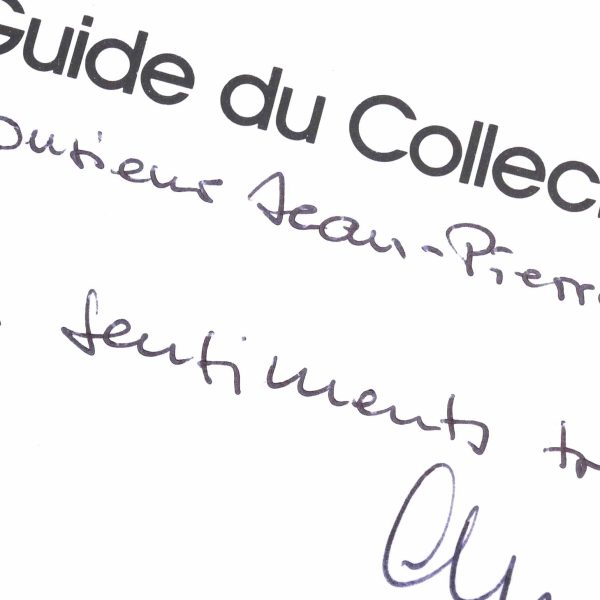 Guide du Collec
onsieur Jean-Pierre
sentiments tr